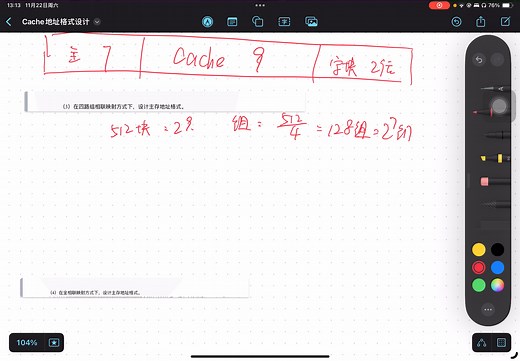 13:13 11月22日周六
76%
Cache地址格式设计
主 7 Cache 9 字块 2位
(3) 在四路组相联映射方式下,设计主存地址格式。
512块 = 2⁹. 组: 512/4 = 128组 = 2⁷
(4) 在全相联映射方式下,设计主存地址格式。
104%